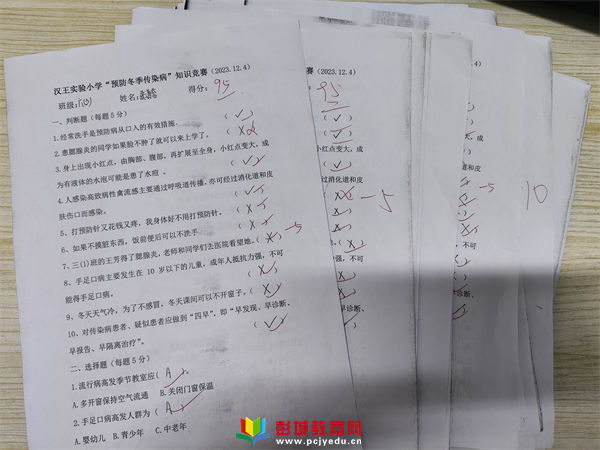 汉王实验小学“预防冬季传染病”知识竞赛(2023.12.4)
班级: 姓名: 得分: 95
一、判断题(每题5分)
1.经常洗手是预防病从口入的有效措施. (✓)
2.患腮腺炎的同学如果脸不肿了就可以来上学了。 (X)
3.身上出现小红点,由胸部、腹部,再扩展至全身,小红点变大,成
为有液体的水泡可能是患了水痘 。 (✓)
4.人感染高致病性禽流感主要通过呼吸道传播,亦可经过消化道和皮
肤伤口而感染。 (✓)
5、打预防针又花钱又疼,我身体好不用打预防针。 (X)
6、如果不摸脏东西,饭前便后可以不洗手 (X)
7、三(1)班的王芳得了腮腺炎,老师和同学们去医院看望她。(X) -5
8、手足口病主要发生在 10 岁以下的儿童,成年人抵抗力强,不可
能得手足口病。 (X)
9、冬天天气冷,为了不感冒,冬天课间可以不开窗子。(X)
10、对传染病患者、疑似患者应做到“四早”,即“早发现、早诊断、
早报告、早隔离治疗”。 (✓)
二、选择题(每题5分)
1.流行病高发季节教室应( A )。
A.多开窗保持空气流通 B.关闭门窗保温
2.手足口病高发人群为( A )
A.婴幼儿 B.青少年 C.中老年
赛(2023.12.4)
95
小红点变大,成
过消化道和皮
-5
强,不可
早诊断、
点变大,成
化道和皮
-5
不可
诊断、
10
彭城教育网
www.pcjyedu.cn